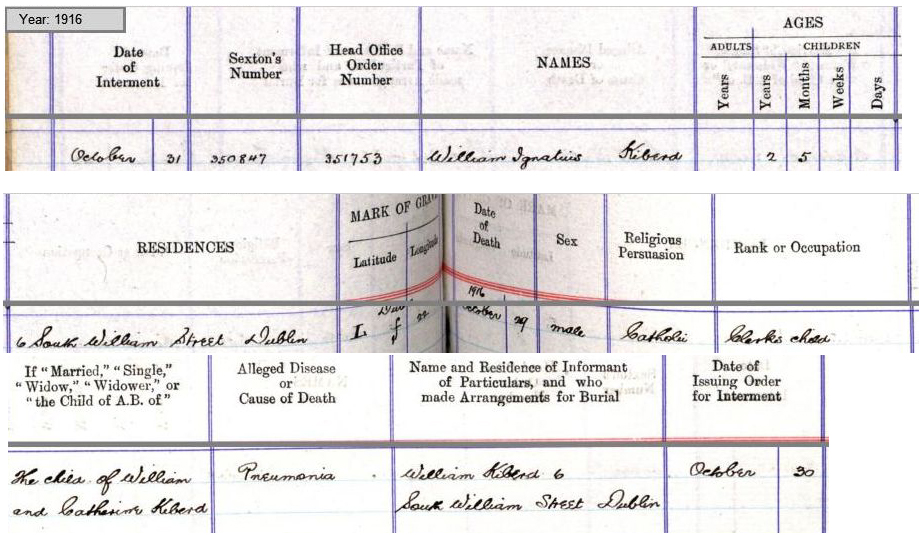 Year: 1916
Date of Interment
Sexton's Number
Head Office Order Number
NAMES
AGES
ADULTS
CHILDREN
Years
Years
Months
Weeks
Days
October 31 350847 351753 William Ignatius Kiberd 2 5
RESIDENCES
MARK OF
Latitude
Date of Death
Sex
Religious Persuasion
Rank or Occupation
1916
6 South William Street Dublin L f 22 October 29 male Catholic Clerks child
If "Married," "Single,"
"Widow," "Widower," or
"the Child of A.B. of"
Alleged Disease
or
Cause of Death
Name and Residence of Informant
of Particulars, and who
made Arrangements for Burial
Date of
Issuing Order
for Interment
The child of William Pneumonia William Kiberd 6 October 30
and Catherine Kiberd South William Street Dublin